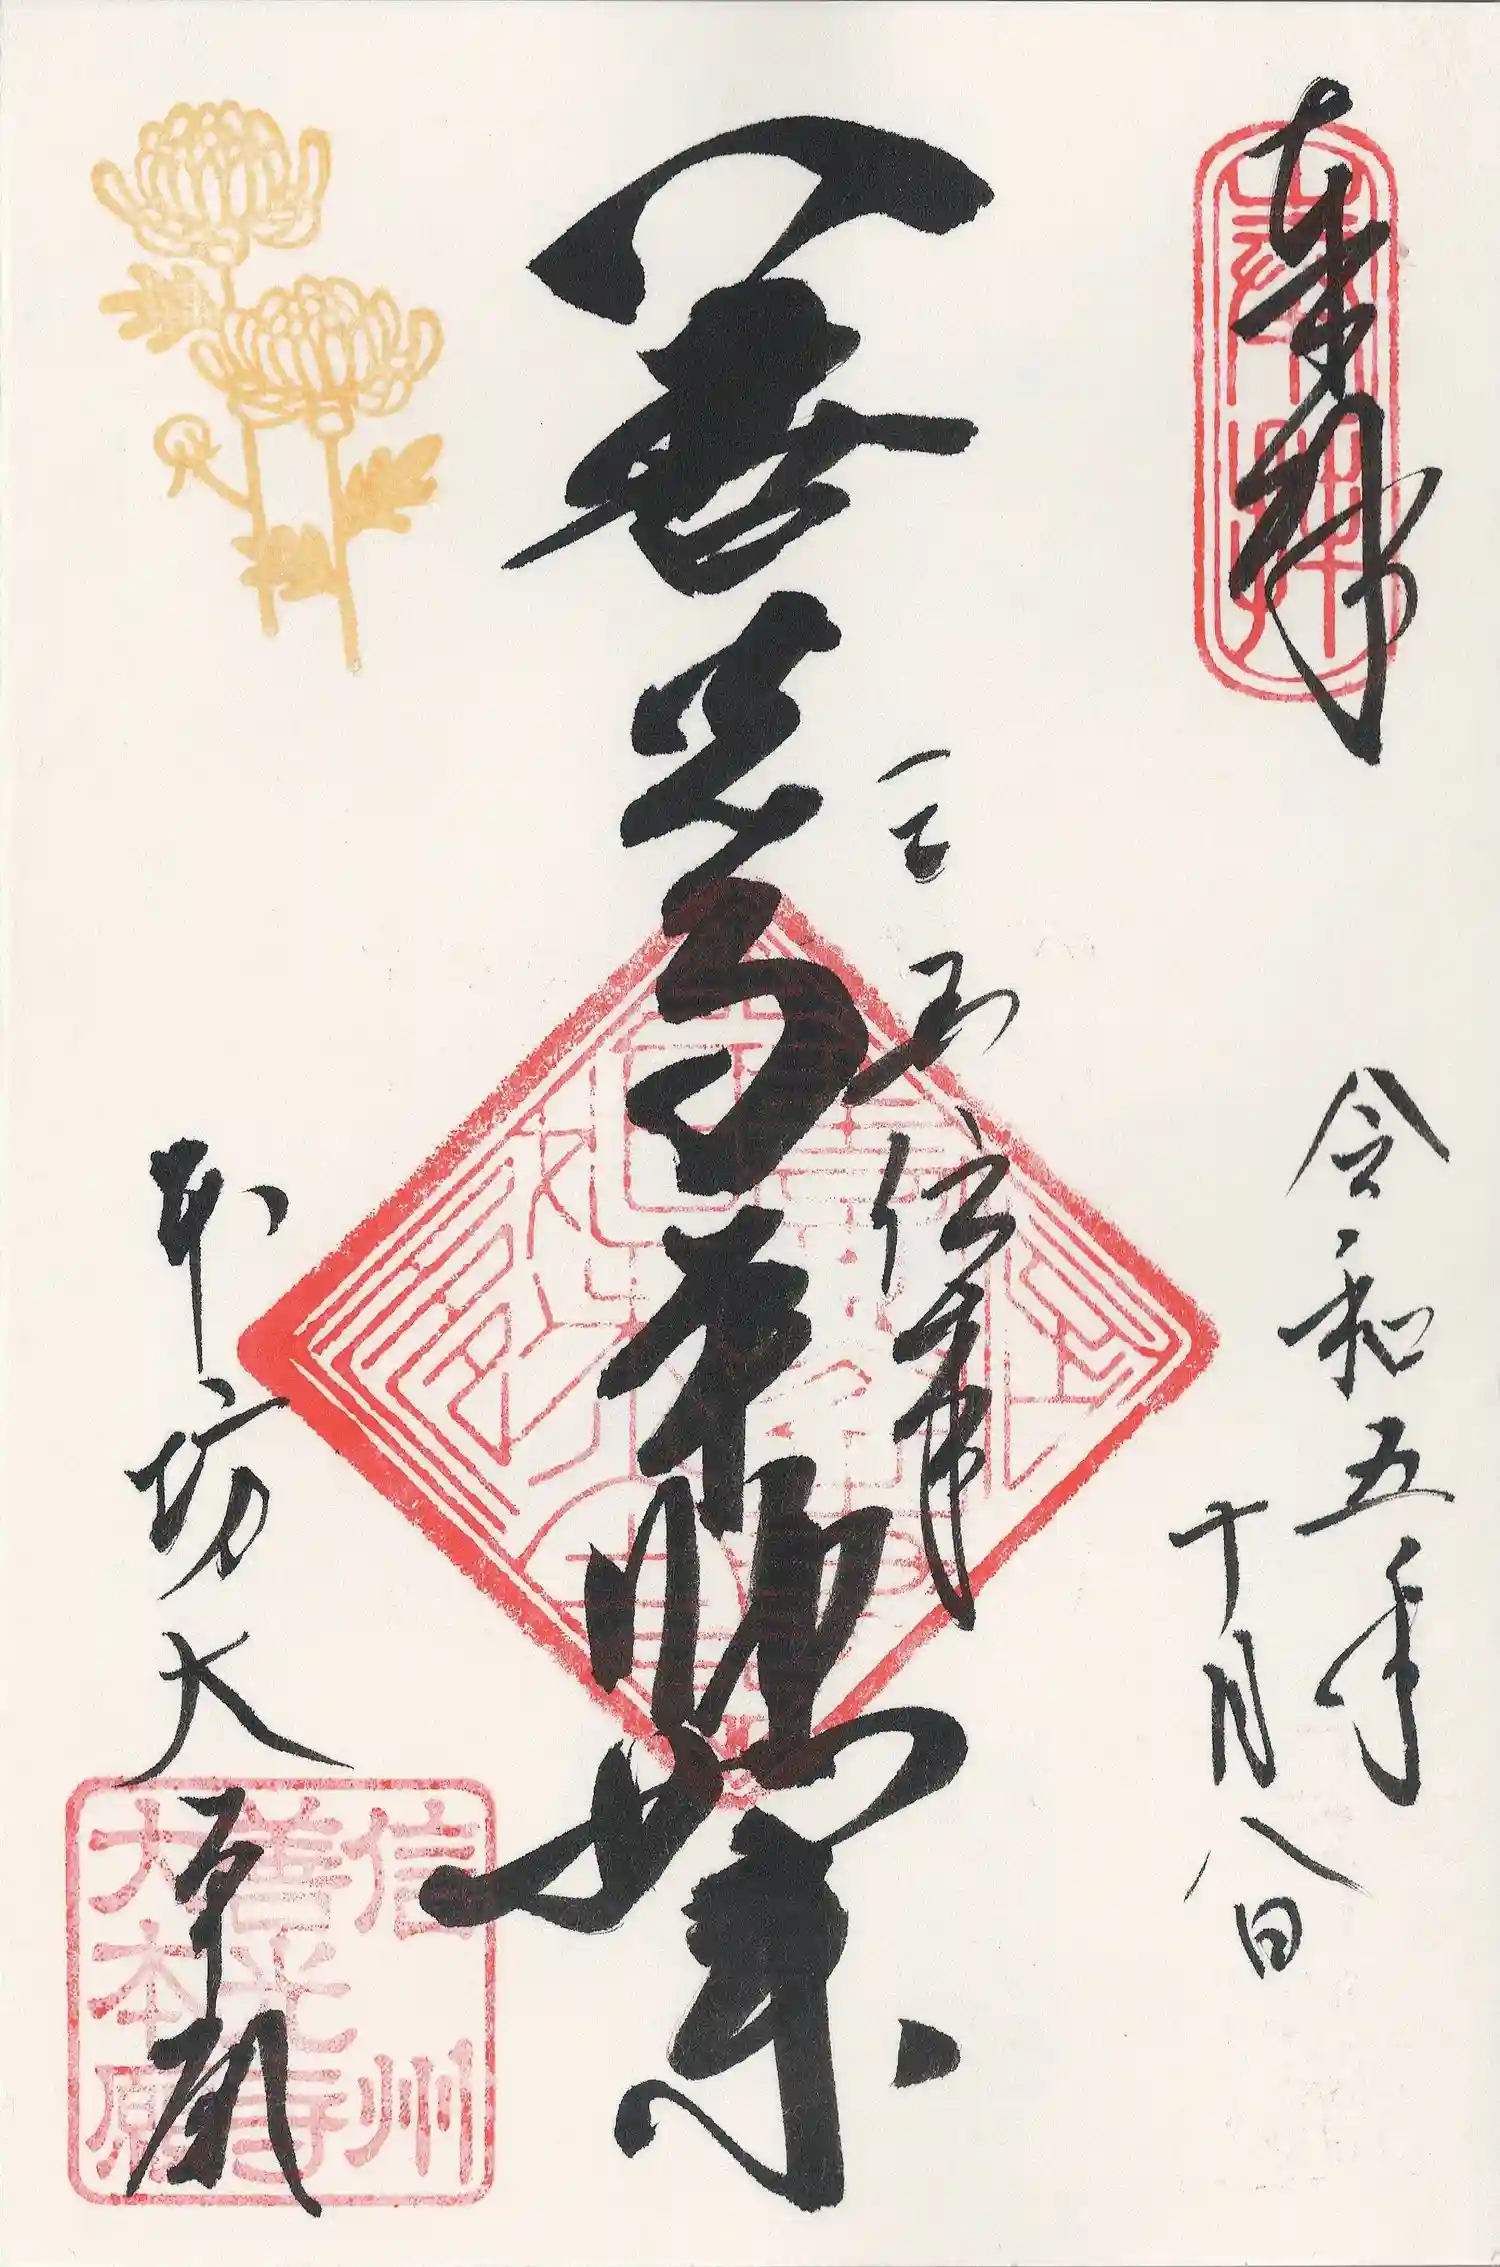 奉拝
令和五年
十月八日
三国伝来
善光寺本
如来
本坊大本願
信州
善光寺
大本願